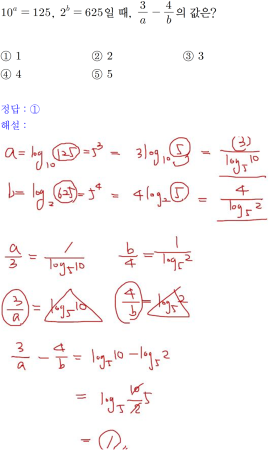 10^a = 125, 2^b = 625일 때, 3/a − 4/b 의 값은?
① 1 ② 2 ③ 3
④ 4 ⑤ 5
정답 : ①
해설 :
a = log_10 125 = 5^3 = 3log_10 5 = (3)/log_5 10
b = log_2 625 = 5^4 = 4log_2 5 = 4/log_5 2
a/3 = 1/log_5 10 b/4 = 1/log_5 2
3/a = log_5 10 4/b = log_5 2
3/a − 4/b = log_5 10 − log_5 2
= log_5 10/2 5
= 1